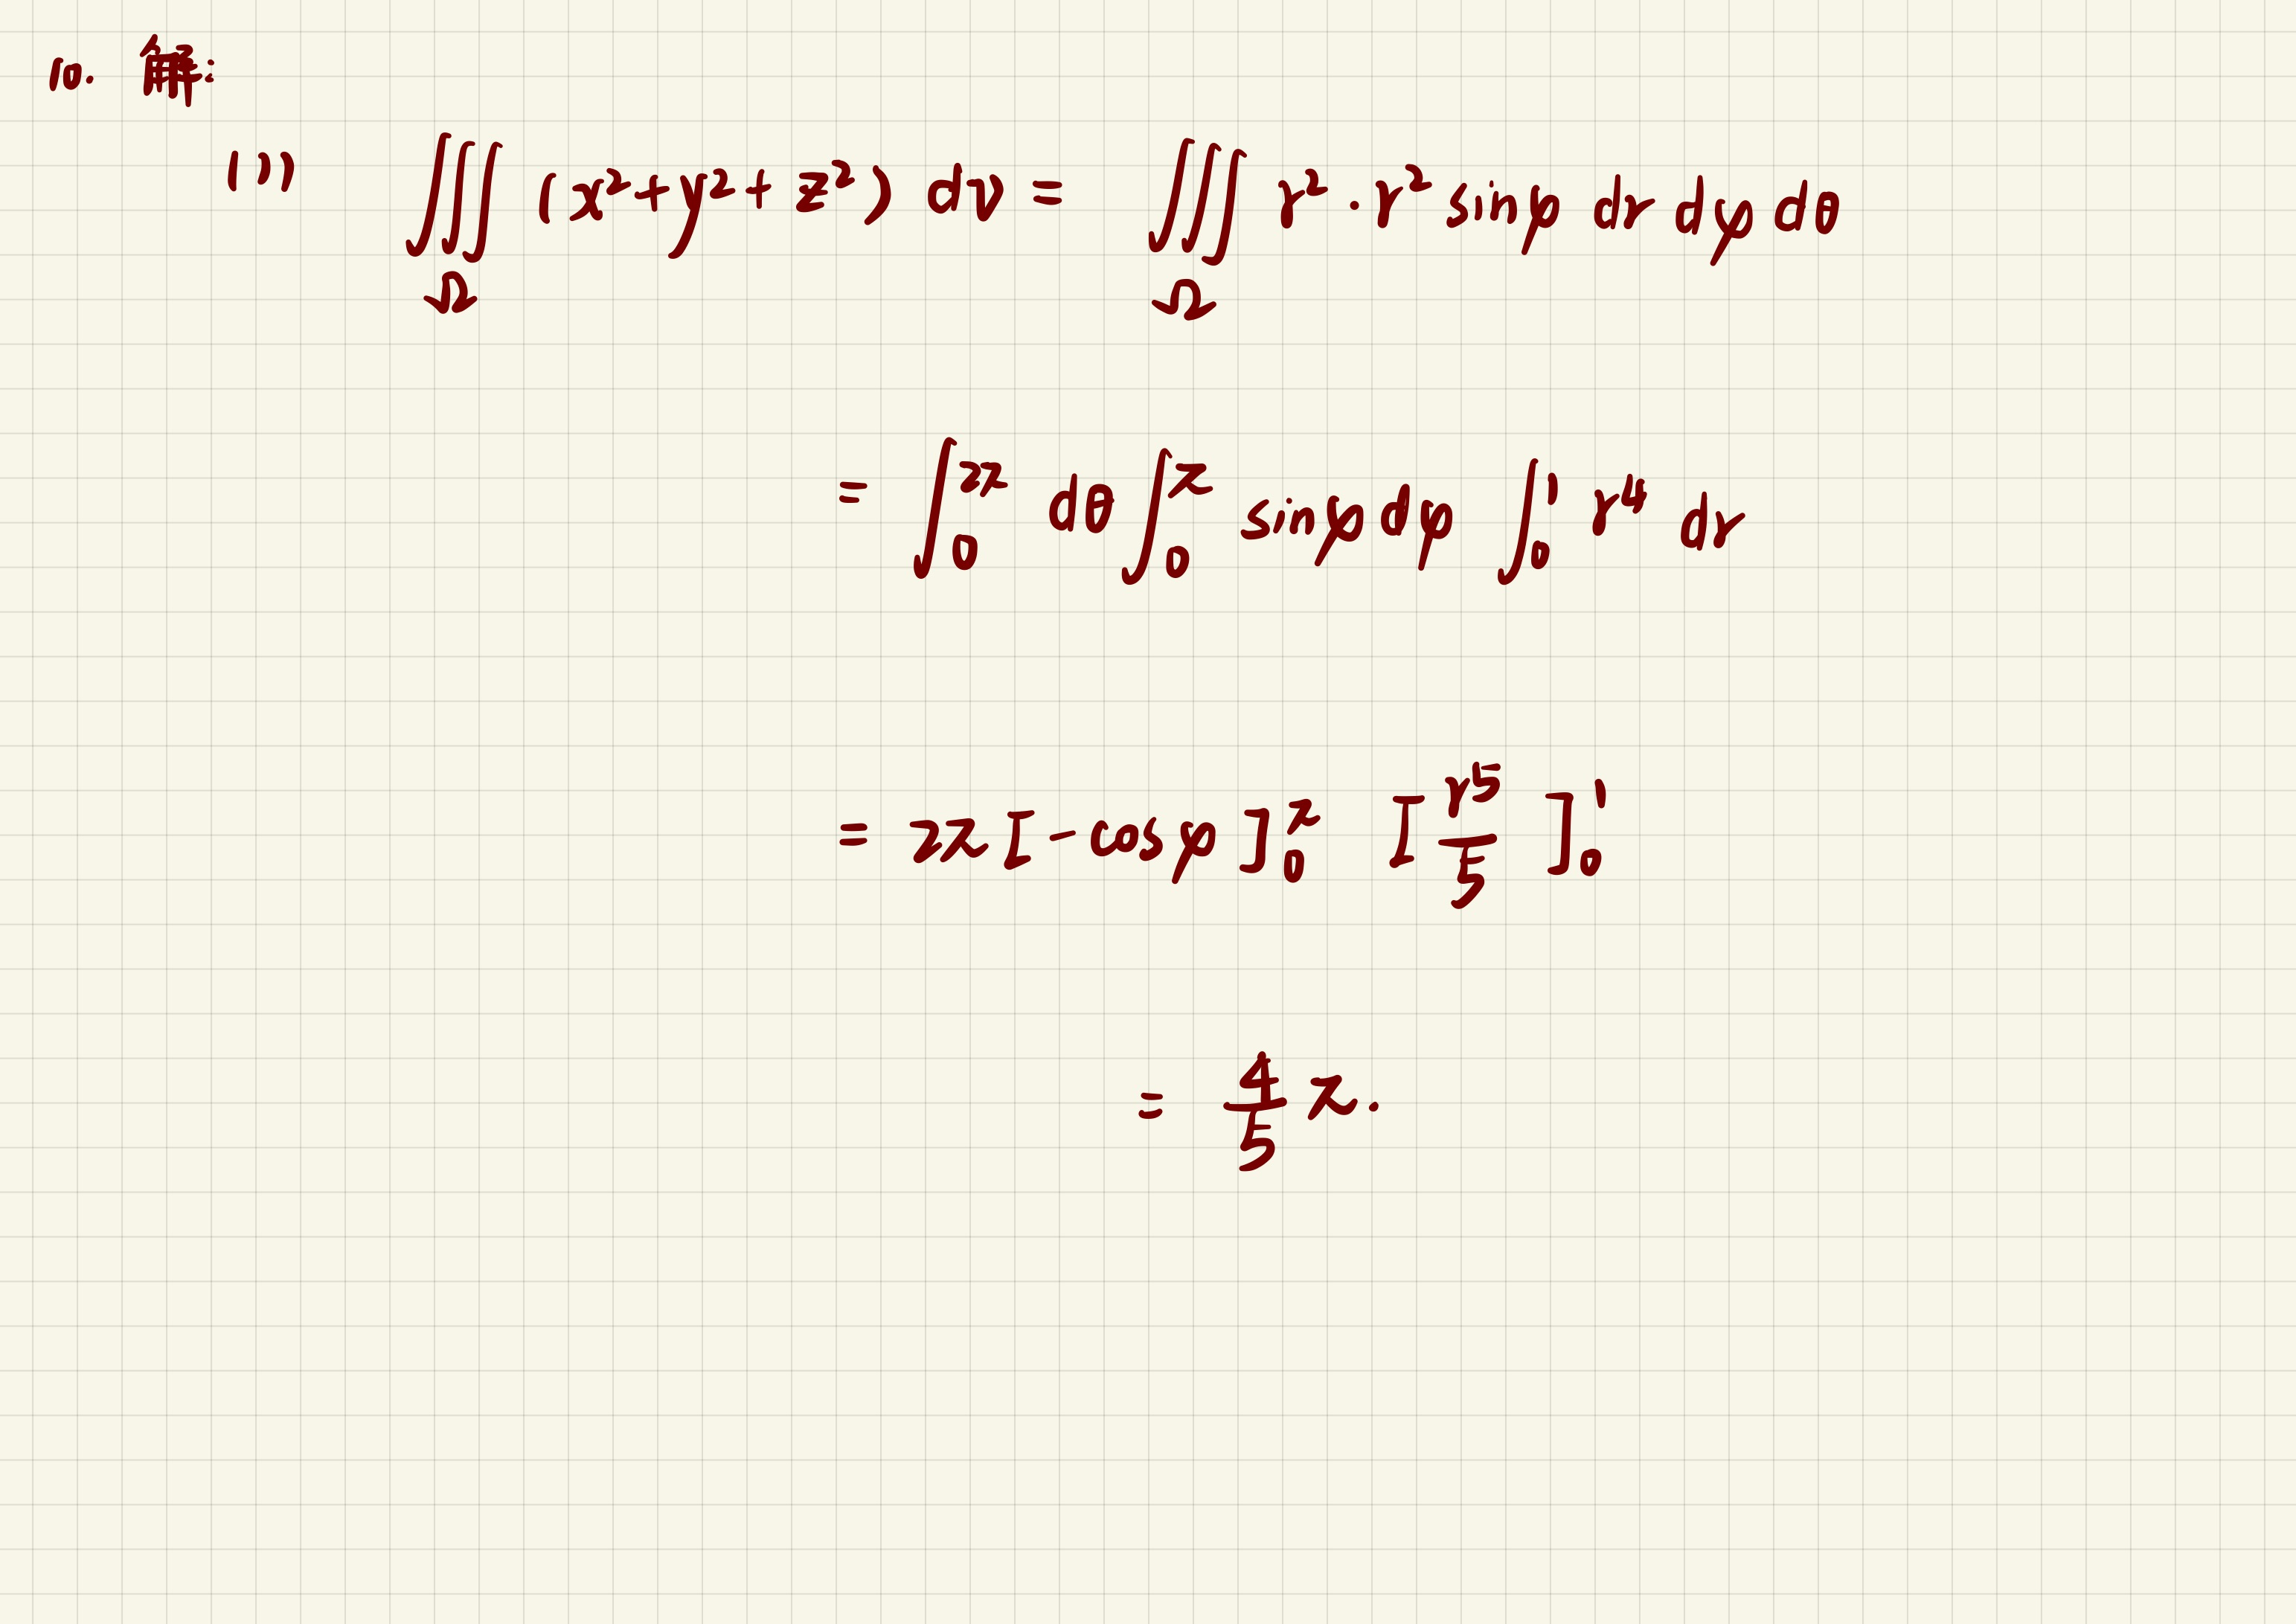 10. 解:
(1) ∭_Ω (x²+y²+z²) dv = ∭_Ω r²·r² sinφ dr dφ dθ
= ∫_0^{2π} dθ ∫_0^π sinφ dφ ∫_0^1 r⁴ dr
= 2π [-cosφ]_0^π [r⁵/5]_0^1
= 4/5 π.